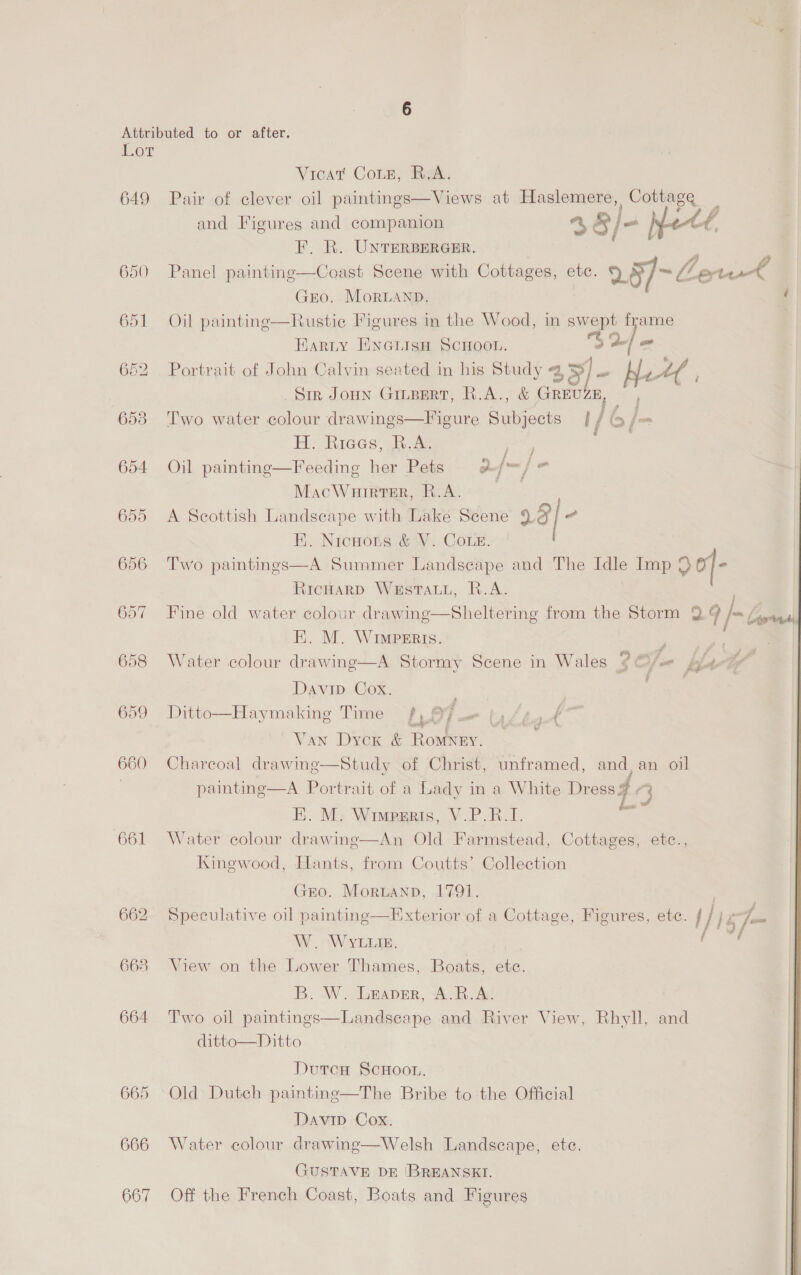 6
Attributed to or after.
Lot
Vicat Cole, R.A.
649 Pair of clever oil paintings—Views at Haslemere, Cottage
and Figures and companion 38/-
F. R. Unterberger.
650 Panel painting—Coast Scene with Cottages, etc. 25/-
Geo. Morland.
651 Oil painting—Rustic Figures in the Wood, in swept frame
Early English School. 32/-
652 Portrait of John Calvin seated in his Study 35/-
Sir John Gilbert, R.A., & Greuze,
653 Two water colour drawings—Figure Subjects 1/6/-
H. Riggs, R.A.
654 Oil painting—Feeding her Pets 2/-/-
MacWhirter, R.A.
655 A Scottish Landscape with Lake Scene 28/-
E. Nichols & V. Cole.
656 Two paintings—A Summer Landscape and The Idle Imp 20/-
Richard Westall, R.A.
657 Fine old water colour drawing—Sheltering from the Storm 29/-
E. M. Wimperis.
658 Water colour drawing—A Stormy Scene in Wales 20/-
David Cox.
659 Ditto—Haymaking Time
Van Dyck & Romney.
660 Charcoal drawing—Study of Christ, unframed, and an oil
painting—A Portrait of a Lady in a White Dress
E. M. Wimperis, V.P.R.I.
661 Water colour drawing—An Old Farmstead, Cottages, etc.,
Kingwood, Hants, from Coutts' Collection
Geo. Morland, 1791.
662 Speculative oil painting—Exterior of a Cottage, Figures, etc.
W. Wyllie.
663 View on the Lower Thames, Boats, etc.
B. W. Leader, A.R.A.
664 Two oil paintings—Landscape and River View, Rhyll, and
ditto—Ditto
Dutch School.
665 Old Dutch painting—The Bribe to the Official
David Cox.
666 Water colour drawing—Welsh Landscape, etc.
Gustave de Breanski.
667 Off the French Coast, Boats and Figures